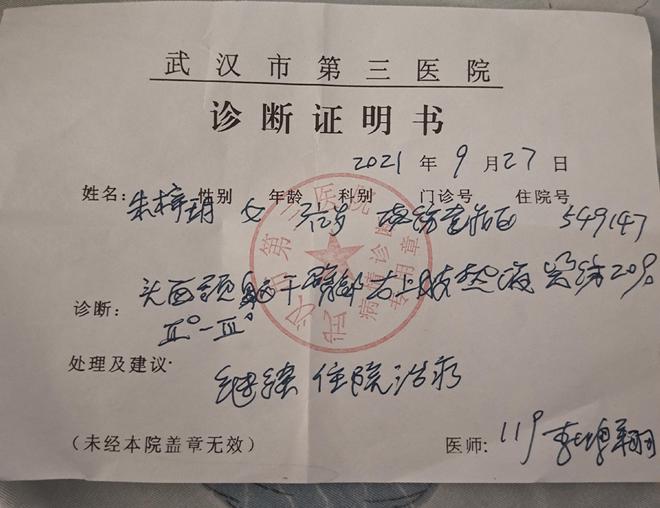 武汉市第三医院
诊断证明书
2021 年 9 月 27 日
姓名: 性别 年龄 科别 门诊号 住院号
朱梓玥 女 549147
诊断: 头面颈躯干臀部右上肢热液烫伤20%
II°-III°
处理及建议: 继续住院治疗
(未经本院盖章无效) 医师: 119
武汉市第三医院
病情诊断
专用章